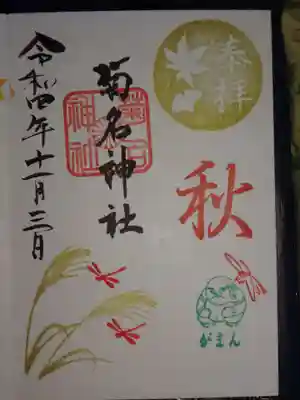 奉拝
秋
菊名神社
菊名神社
がまん
令和四年十一月三日